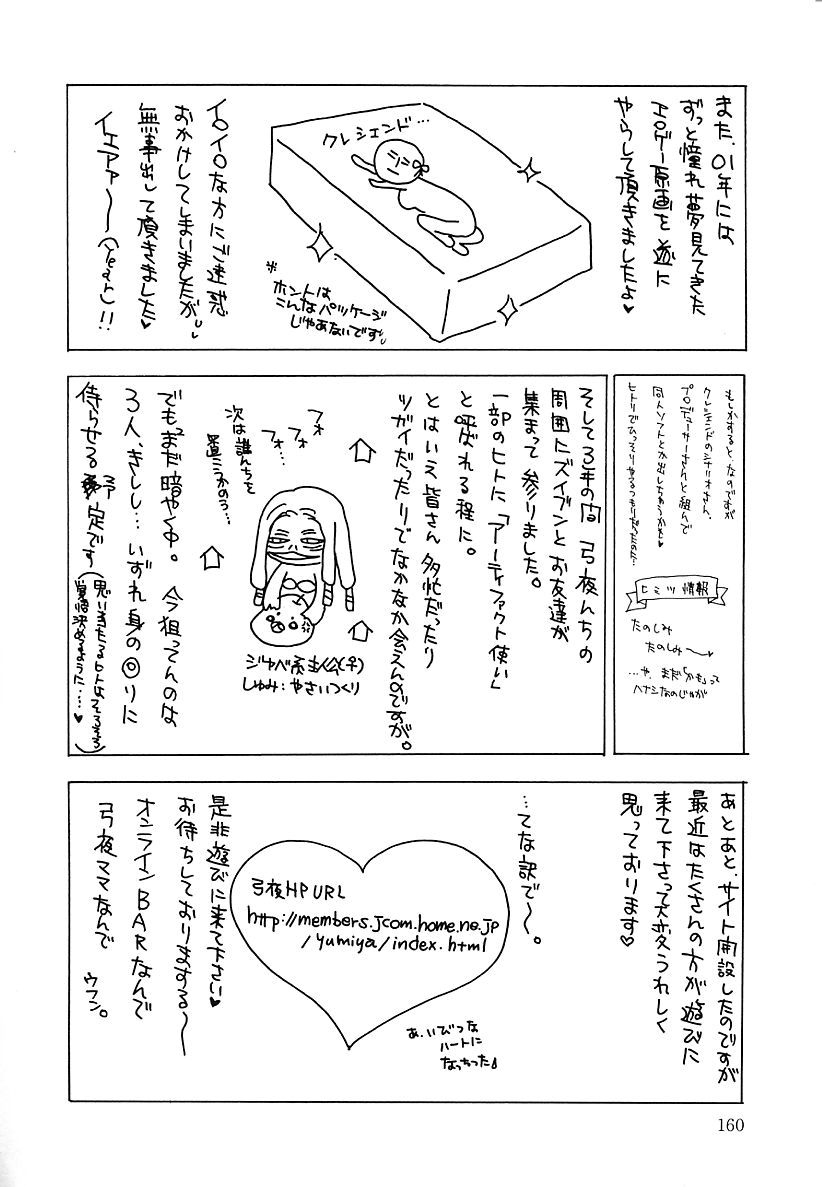 また、01年には
ずっと憧れ夢見てきた
エロゲー原画を遂に
やらして頂きましたよ♥
クレシェンド…
※ホントは
こんなパッケージ
じゃあないです
イロイロな方にご迷惑
おかけしてしまいましたが
無事出して頂きました♥
イエアァ〜(Yeah)!!
もしかすると、なのですが
クレシェンドのシナリオさん、
プロデューサーさんと組んで
同人ソフトとか出しちゃうかも♥
ヒトリでひっそりやるつもりだったのだ…
ヒミツ情報
たのしみ
たのしみ〜
…や、まだ「かも」って
ハナシなのじゃが
そして3年の間 弓夜んちの
周囲にズイブンとお友達が
集まって参りました。
一部のヒトに「アーティファクト使い」
と呼ばれる程に。
とはいえ皆さん多忙だったり
ツガイだったりでなかなか会えんのですが。
フォ
フォ
フォ…
次は誰んちを
置こうかのう…
ジャベ系主人公(♀)
しゅみ:やさいつくり
でもまだ暗やく中。今狙ってんのは
3人、きしし…いずれ身の回りに
待らせる予定です(思い当たるヒトはそろそろ
覚悟決めるように…♥)
あとあと、サイト開設したのですが
最近はたくさんの方が遊びに
来て下さって大変うれしく
思っております♥
…てな訳で〜。
弓夜HP URL
http://members.jcom.home.ne.jp
/yumiya/index.html
あ、いびつな
ハートに
なっちった♪
是非遊びに来て下さい♥
お待ちしておりまする〜
オンラインBARなんで
弓夜ママなんで
ウフン。
160